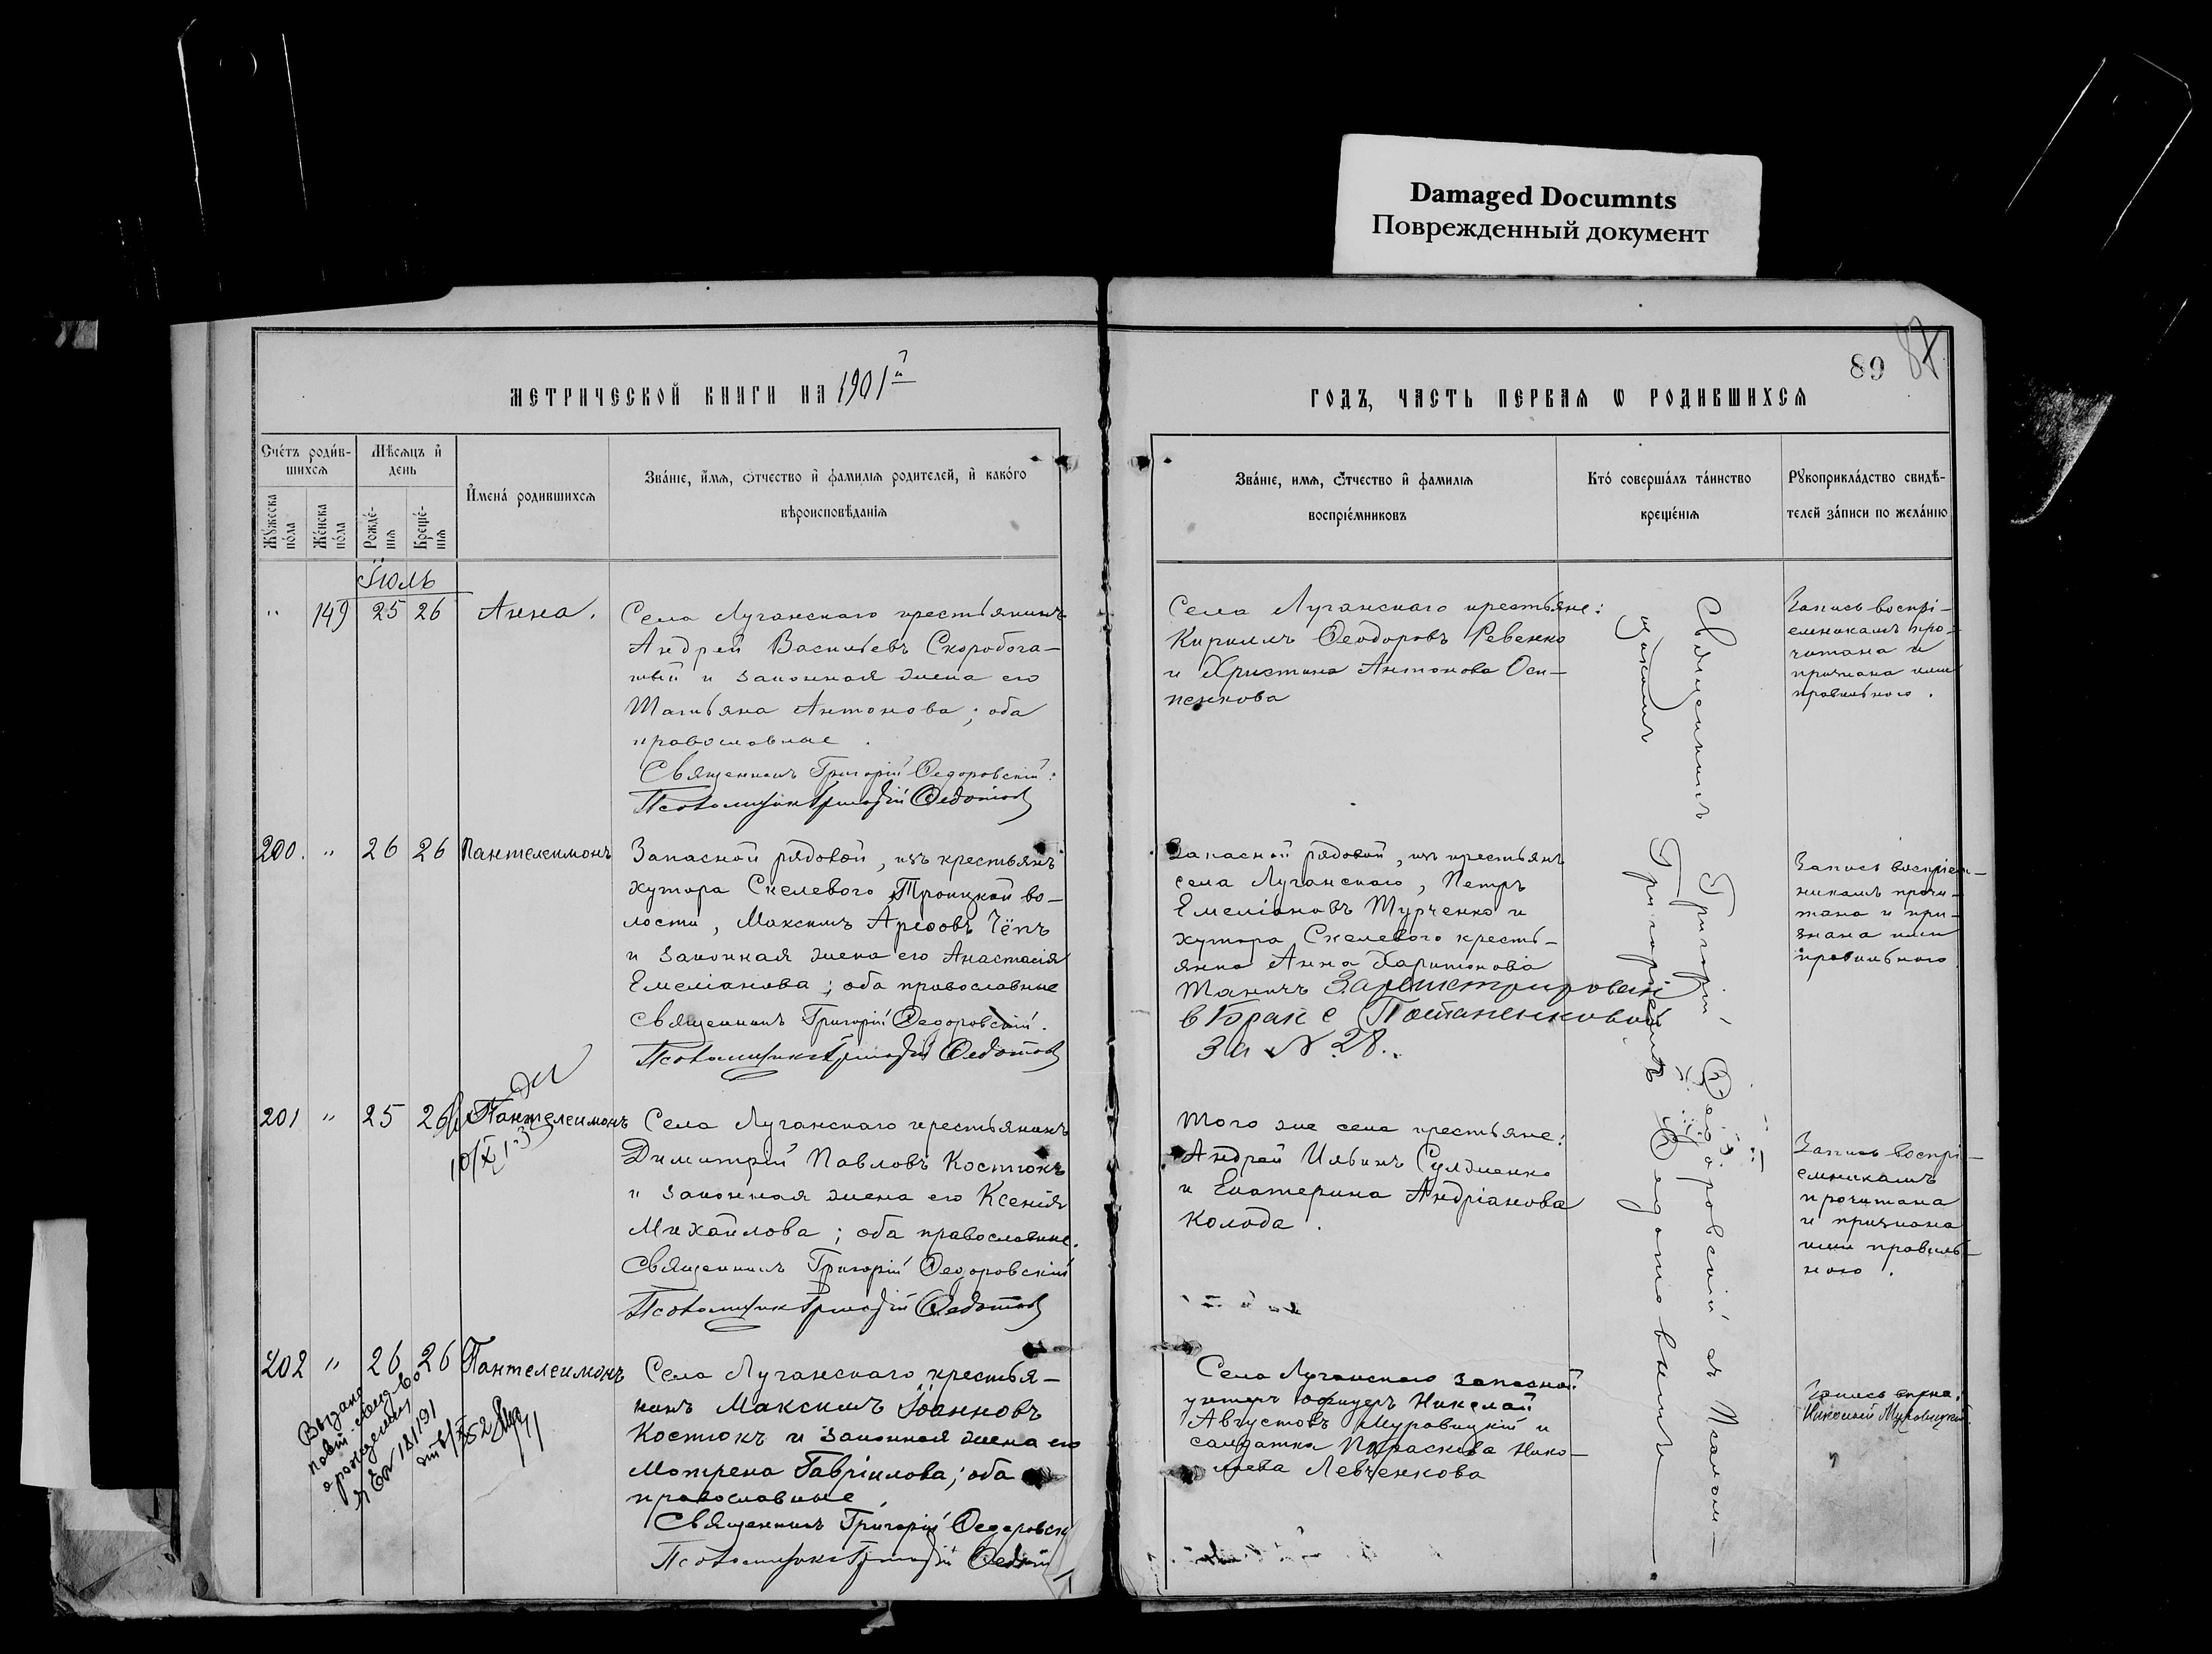 Damaged Documnts
Поврежденный документ
89
МЕТРИЧЕСКОЙ КНИГИ НА 1901й
ГОДЪ, ЧАСТЬ ПЕРВАЯ Ѡ РОДИВШИХСЯ
Счéтъ роди́в-
шихсѧ
Мѣсѧцъ и҆
день
И҆мена́ родившихсѧ
Зва́нїе, и҆́мѧ, ѻ҆тчество и҆ фамилїѧ родителей, и҆ како́гѡ
вѣроисповѣда́нїѧ
Мꙋ́жеска
по́ла
Же́нска
по́ла
Рожде́-
нїѧ
Креще́-
нїѧ
Зва́нїе, имѧ, ѻ҆́тчество и҆ фамилїѧ
воспрїе́мниковъ
Кто́ соверша́лъ та́инство
креще́нїѧ
Рꙋкоприкла́дство свидѣ-
телей за́писи по жела́нїю
Іюль
" 149 25 26 Анна.
Села Луганскаго крестьянинъ
Андрей Васильевъ Скоробога-
тый и законная жена его
Татьяна Антонова; оба
православные.
Священникъ Григорій Ѳедоровскій.
Псаломщикъ Григорій Ѳедотовъ
Села Луганскаго крестьяне:
Кириллъ Ѳеодоровъ Ревенко
и Христина Антонова Оси-
пенкова
Запись воспрі-
емникамъ про-
читана и
признана ими
правильною.
200. " 26 26 Пантелеимонъ
Запасной рядовой, изъ крестьянъ
хутора Скелевого Троицкой во-
лости, Максимъ Ареѳовъ Чёпъ
и законная жена его Анастасія
Емеліанова; оба православные
Священникъ Григорій Ѳедоровскій.
Псаломщикъ Григорій Ѳедотовъ
Запасной рядовой, изъ крестьянъ
села Луганскаго, Петръ
Емеліановъ Турченко и
хутора Скелевого кресть-
янка Анна Харитонова
Таничъ Зарегистрирован
в брак с Потапенковой
За № 28.
Запись воспріем-
никамъ прочи-
тана и при-
знана ими
правильною
201 " 25 26 Пантелеимонъ
Села Луганскаго крестьянинъ
Димитрій Павловъ Костюкъ
и законная жена его Ксенія
Михайлова; оба православные.
Священникъ Григорій Ѳедоровскій
Псаломщикъ Григорій Ѳедотовъ
Того же села крестьяне:
Андрей Ильинъ Сулженко
и Екатерина Андріанова
Колода.
Запись воспрі-
емникамъ
прочитана
и признана
ими правиль-
ною.
202 " 26 26 Пантелеимонъ
Села Луганскаго крестья-
нинъ Максимъ Іоанновъ
Костюкъ и законная жена его
Мотрена Гавріилова; оба
православные
Священникъ Григорій Ѳедоровскі
Псаломщикъ Григорій Ѳедотов
Села Луганскаго запасной
унтеръ офицеръ Николай
Августовъ Муравицкій и
салдатка Параскева Нико-
лаева Левченкова
Запись вѣрна:
Николай Муравицкій
Выдано
повт. свид-во
о рождении
Священникъ Григорій Ѳедоровскій съ Псалом-
щикомъ Григоріемъ Ѳедотовымъ